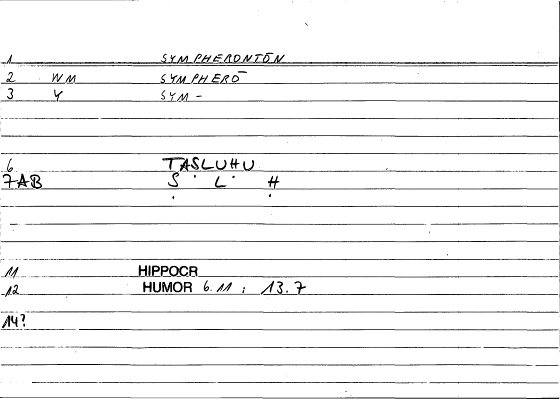 1 SYMPHERONTŌN
2 WM SYMPHERŌ
3 Y SYM-
6 TASLUHU
7AB Ṣ L Ḥ
11 HIPPOCR
12 HUMOR 6.11 ; 13.7
14?